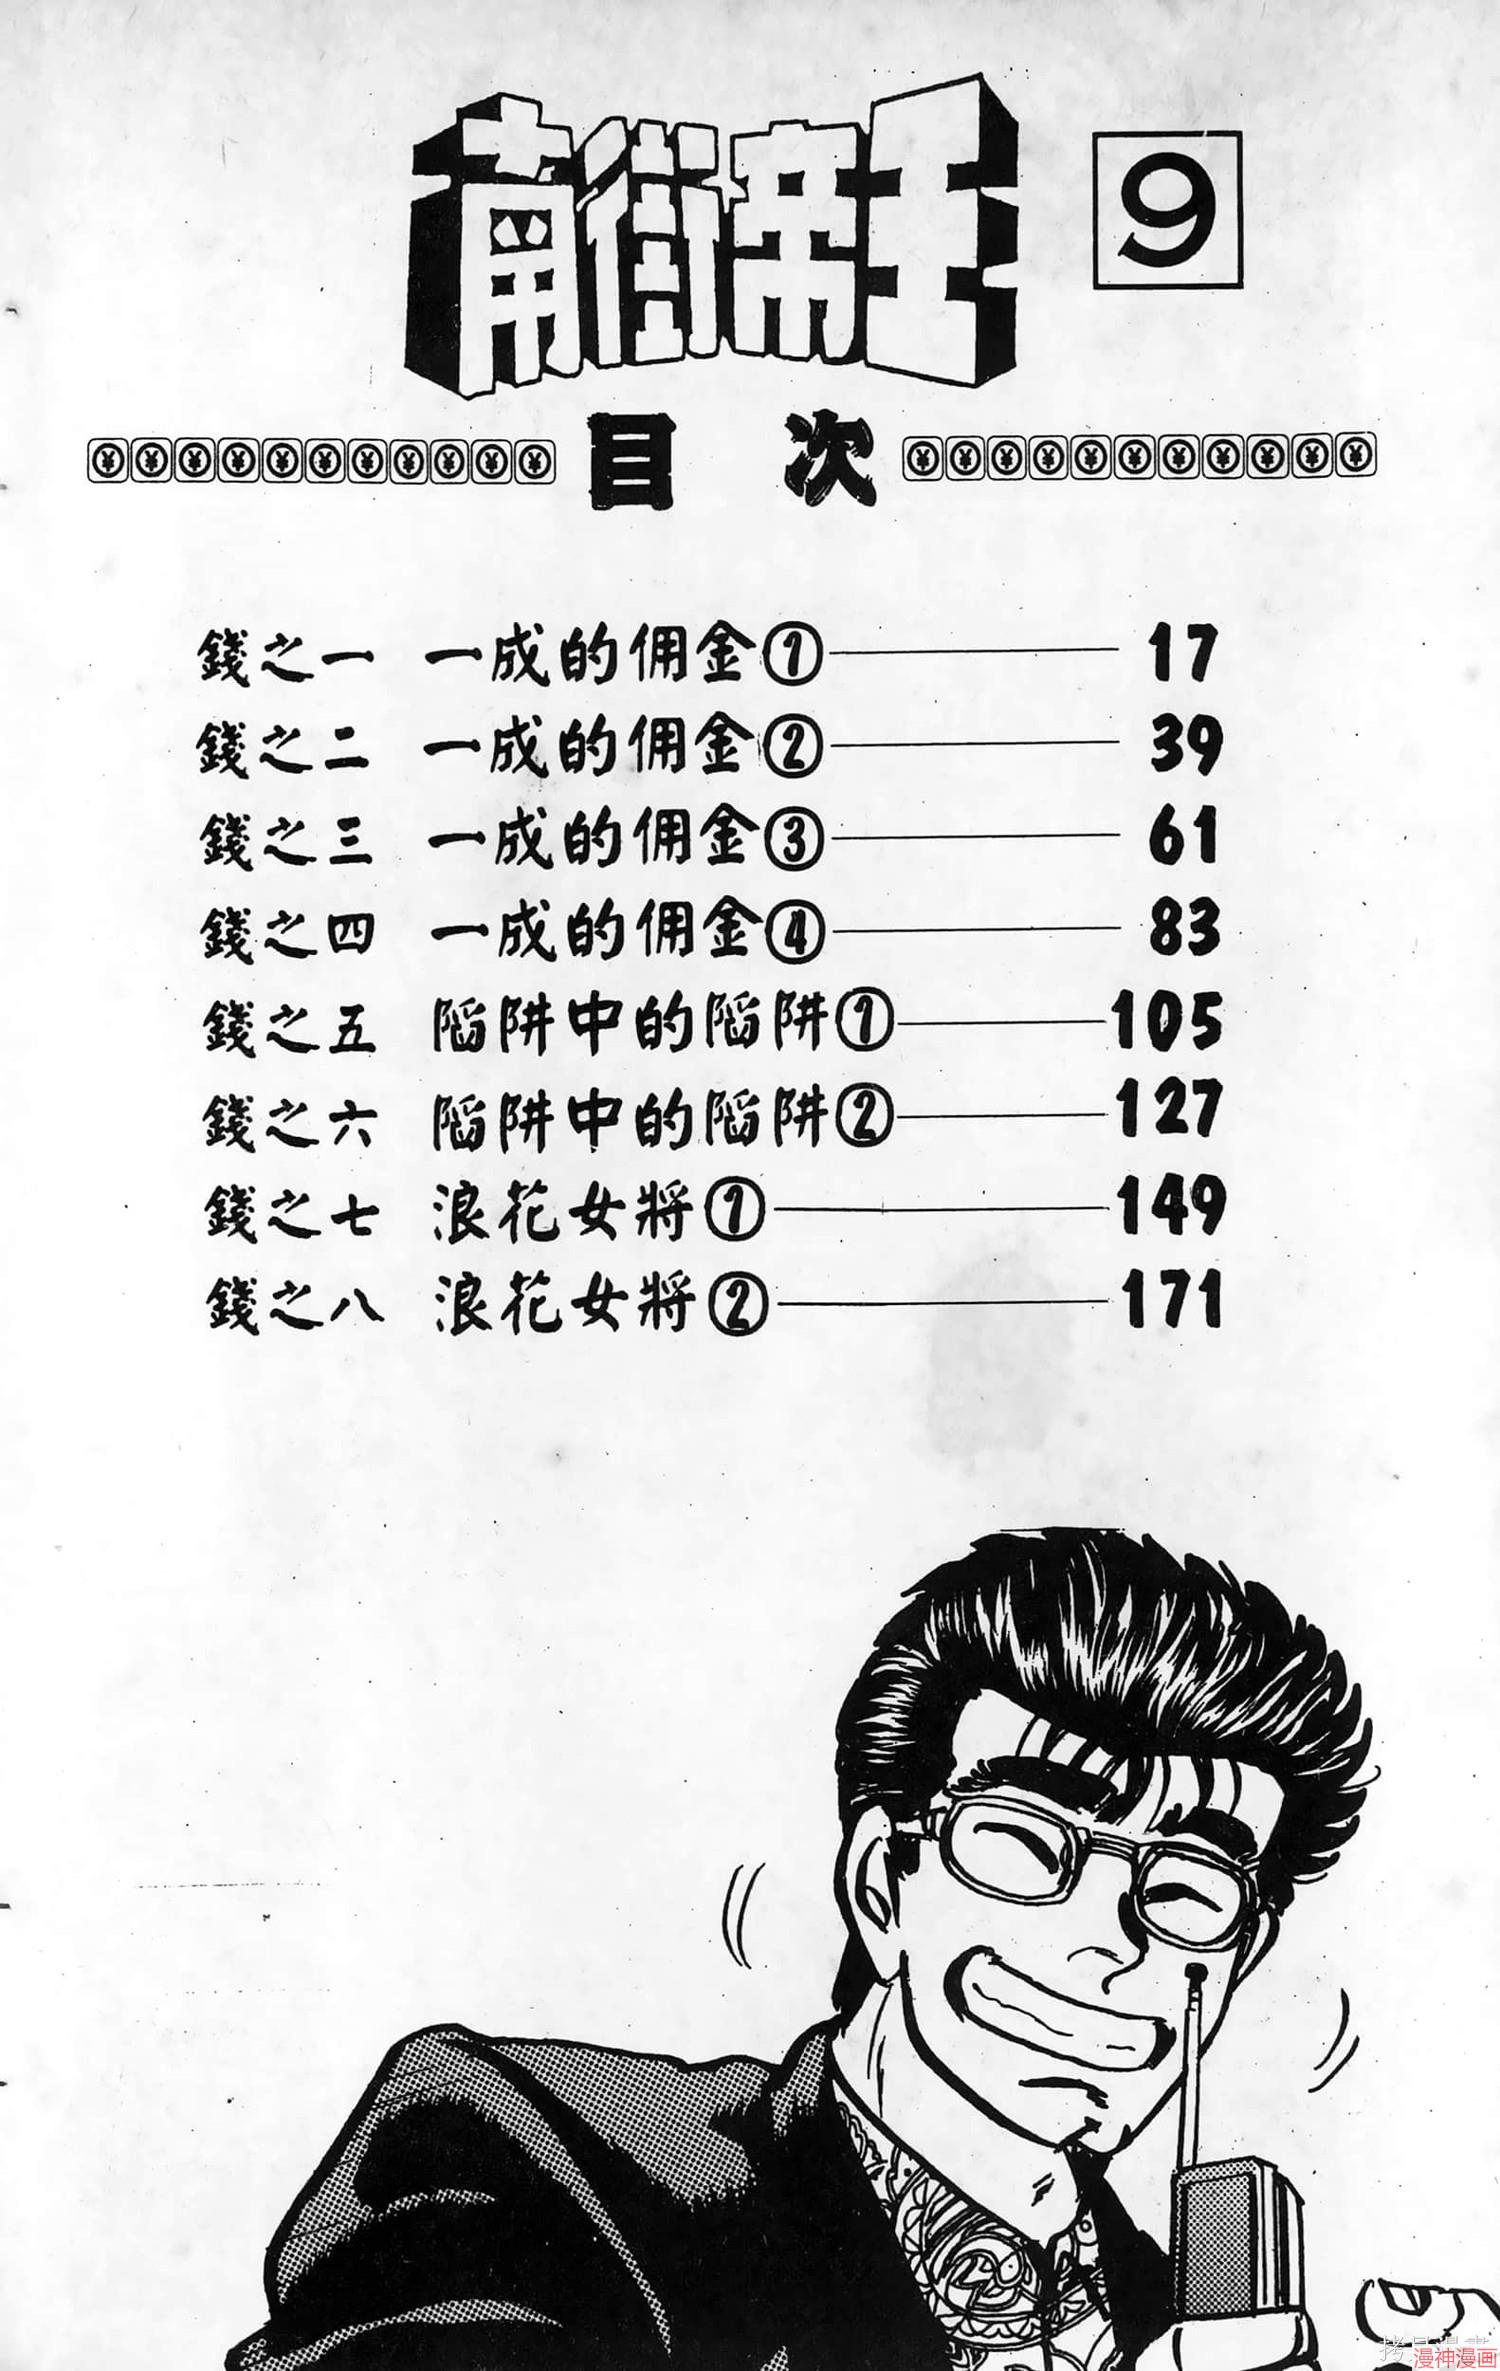 南街帝王 9
目次
錢之一 一成的佣金① 17
錢之二 一成的佣金② 39
錢之三 一成的佣金③ 61
錢之四 一成的佣金④ 83
錢之五 陷阱中的陷阱① 105
錢之六 陷阱中的陷阱② 127
錢之七 浪花女將① 149
錢之八 浪花女將② 171
拷貝漫畫
漫神漫画